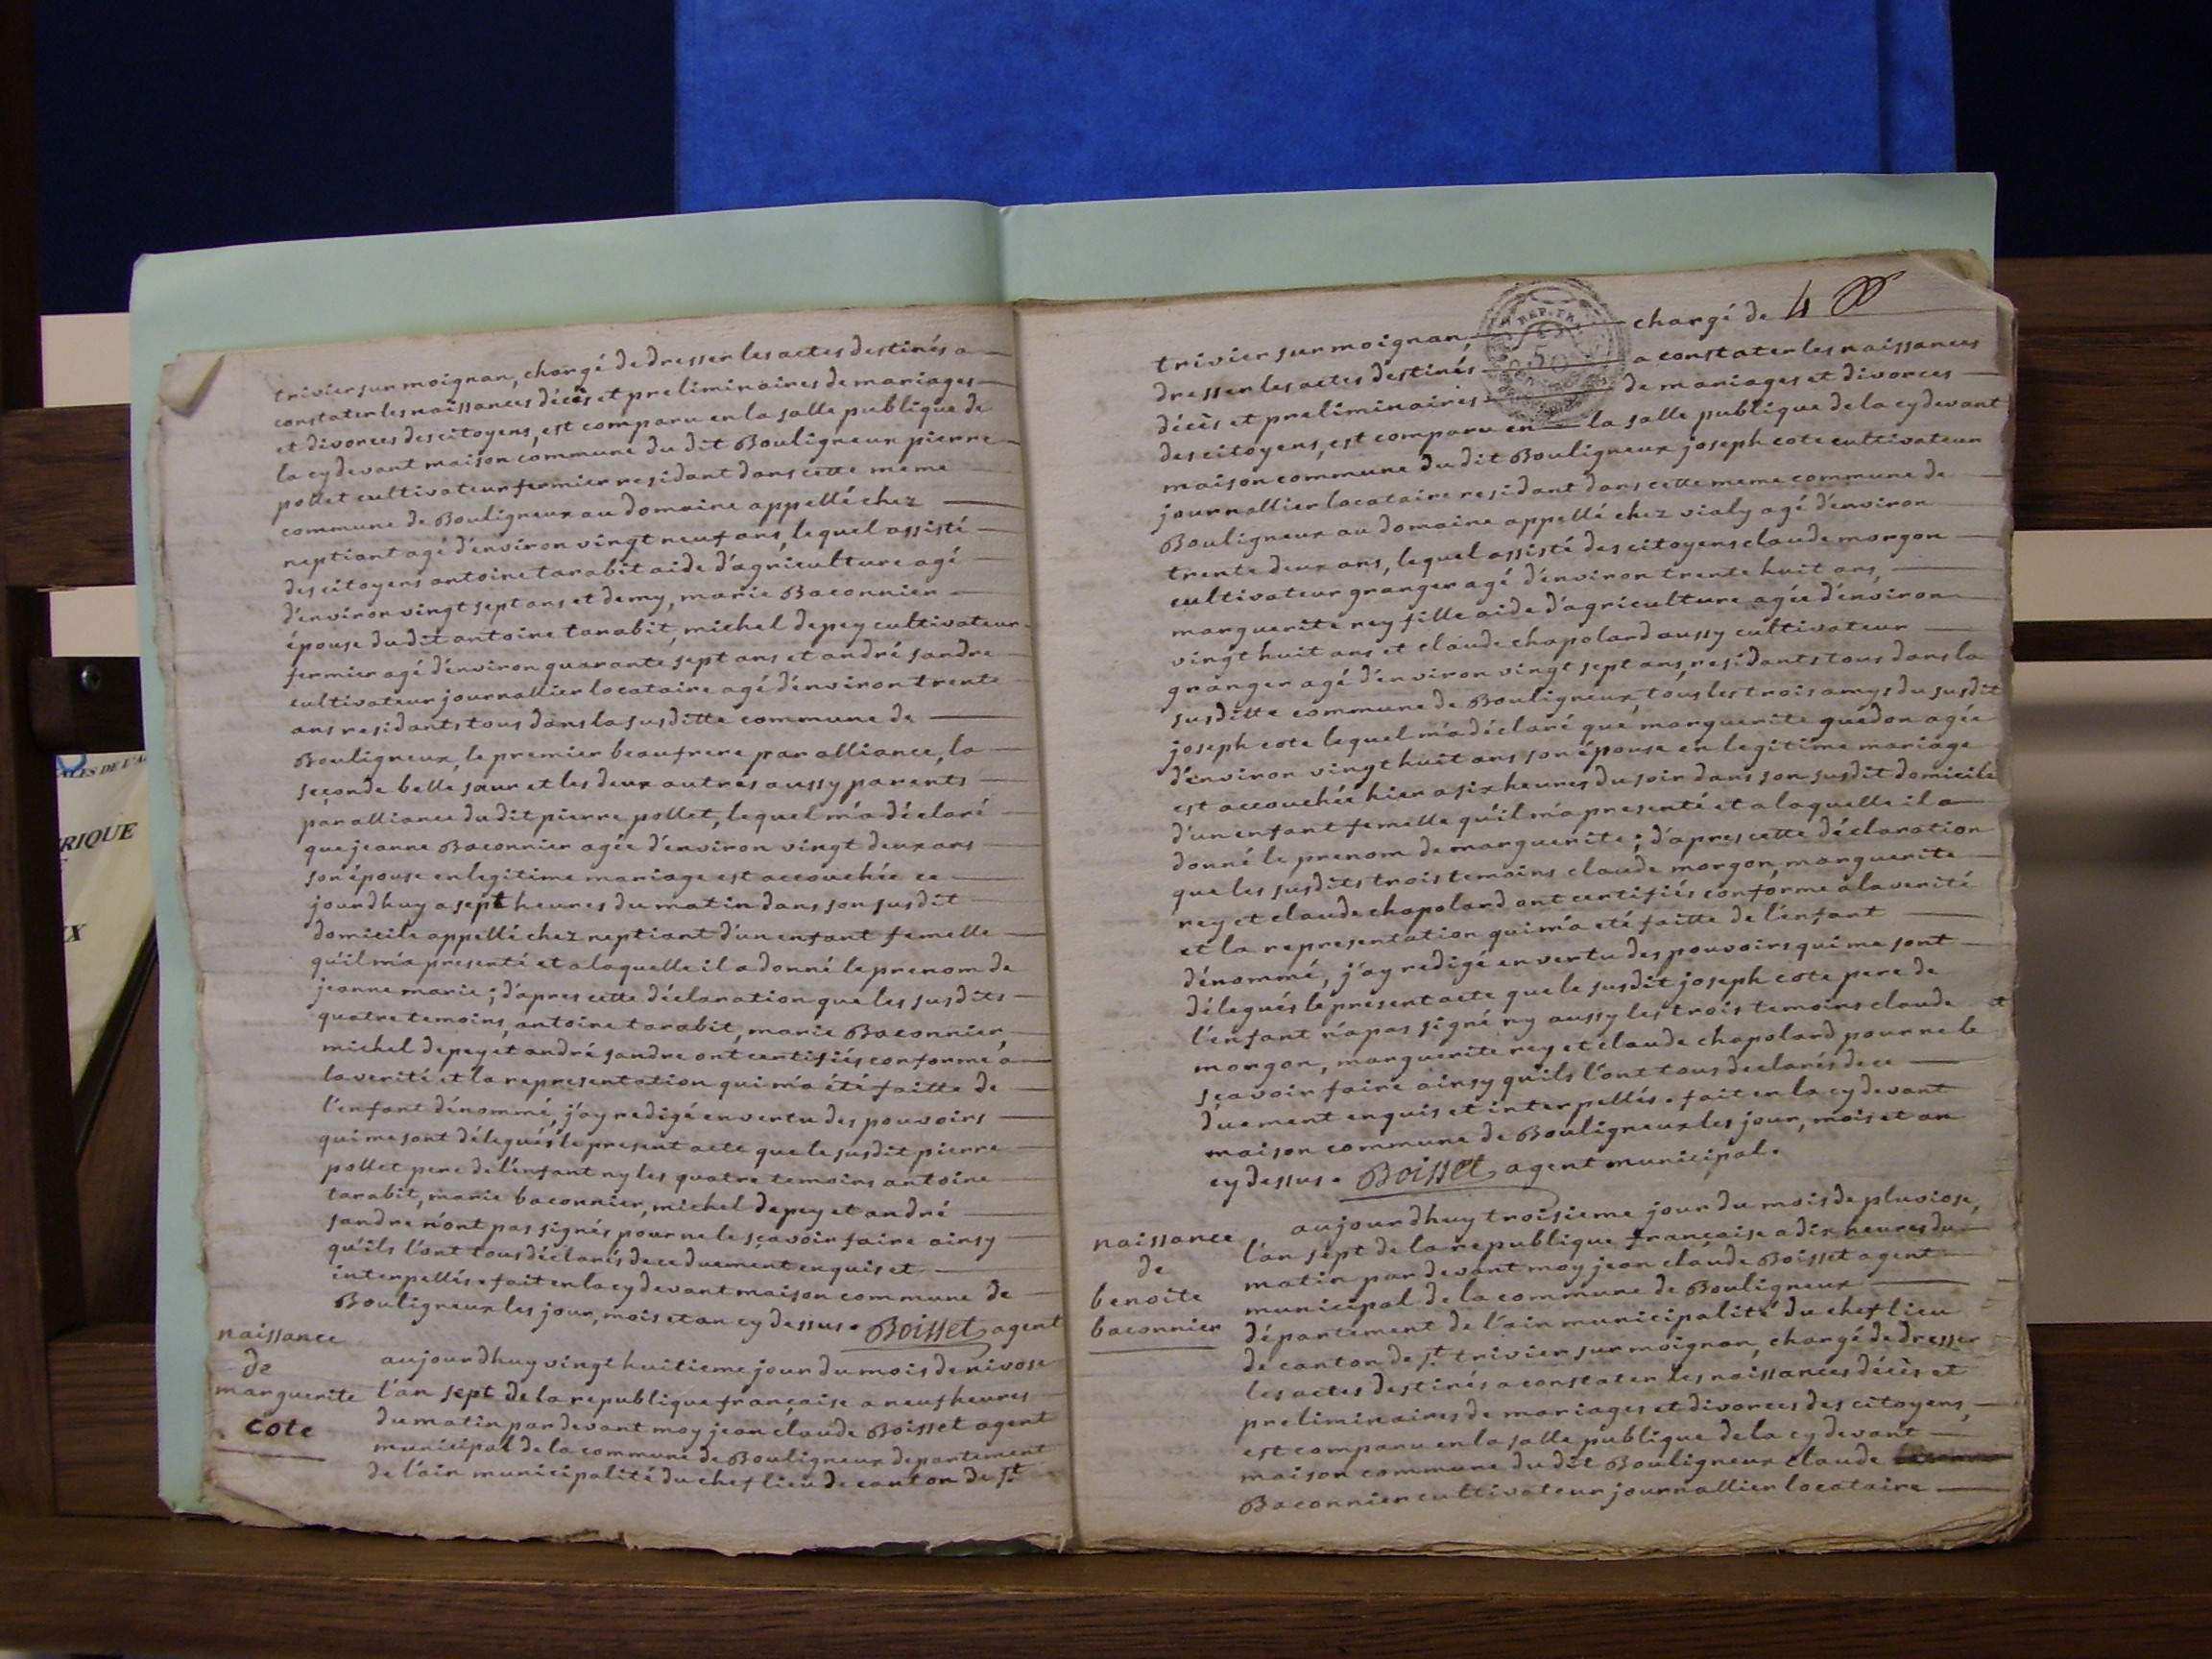 trivier sur moignan, chargé de dresser les actes destinés a
constater les naissances décès et preliminaires de mariages
et divorces des citoyens, est comparu en la salle publique de
la cydevant maison commune du dit Bouligneux pierre
pollet cultivateur fermier residant dans cette meme
commune de Bouligneux au domaine appellé chez
neptiant agé d'environ vingt neuf ans, lequel assisté
des citoyens antoine tarabit aide d'agriculture agé
d'environ vingt sept ans et demy, marie Baconnier
épouse du dit antoine tarabit, michel depey cultivateur
fermier agé d'environ quarante sept ans et andré sandre
cultivateur journallier locataire agé d'environ trente
ans residants tous dans la susditte commune de
Bouligneux, le premier beaufrere par alliance, la
seconde belle sœur et les deux autres aussy parents
par alliance du dit pierre pollet, lequel m'a déclaré
que jeanne Baconnier agée d'environ vingt deux ans
son épouse en legitime mariage est accouchée ce
jourdhuy a sept heures du matin dans son susdit
domicile appellé chez neptiant d'un enfant femelle
qu'il m'a presenté et a laquelle il a donné le prenom de
jeanne marie ; d'apres cette déclaration que les susdits
quatre temoins, antoine tarabit, marie Baconnier,
michel depey et andré sandre ont certifiés conforme a
la verité et la representation qui m'a été faitte de
l'enfant dénommé, j'ay redigé en vertu des pouvoirs
qui me sont délegués le present acte que le susdit pierre
pollet pere de l'enfant ny les quatre temoins antoine
tarabit, marie baconnier, michel depey et andré
sandre n'ont pas signés pour ne le sçavoir faire ainsy
qu'ils l'ont tous déclarés de ce duement enquis et
interpellés. fait en la cydevant maison commune de
Bouligneux les jour, mois et an cy dessus. Boisset agent
naissance
de
marguerite
cote
aujourdhuy vingt huitieme jour du mois de nivose
l'an sept de la republique française a neuf heures
du matin par devant moy jean claude Boisset agent
municipal de la commune de Bouligneux departement
de l'ain municipalité du chef lieu de canton de st
4
trivier sur moignan, chargé de
dresser les actes destinés a constater les naissances
décès et preliminaires de mariages et divorces
des citoyens, est comparu en la salle publique de la cydevant
maison commune du dit Bouligneux joseph cote cultivateur
journallier locataire residant dans cette meme commune de
Bouligneux au domaine appellé chez vialy agé d'environ
trente deux ans, lequel assisté des citoyens claude morgon
cultivateur granger agé d'environ trente huit ans,
marguerite rey fille aide d'agriculture agée d'environ
vingt huit ans et claude chapolard aussy cultivateur
granger agé d'environ vingt sept ans, residants tous dans la
susditte commune de Bouligneux, tous les trois amys du susdit
joseph cote lequel m'a déclaré que marguerite guedon agée
d'environ vingt huit ans son épouse en legitime mariage
est accouchée hier a six heures du soir dans son susdit domicile
d'un enfant femelle qu'il m'a presenté et a laquelle il a
donné le prenom de marguerite ; d'apres cette déclaration
que les susdits trois temoins claude morgon, marguerite
rey et claude chapolard ont certifiés conforme a la verité
et la representation qui m'a eté faitte de l'enfant
dénommé, j'ay redigé en vertu des pouvoirs qui me sont
délegués le present acte que le susdit joseph cote pere de
l'enfant n'a pas signé ny aussy les trois temoins claude
morgon, marguerite rey et claude chapolard pour ne le
sçavoir faire ainsy qu'ils l'ont tous declarés de ce
duement enquis et interpellés. fait en la cydevant
maison commune de Bouligneux les jour, mois et an
cy dessus. Boisset agent municipal.
naissance
de
benoite
baconnier
aujourdhuy troisieme jour du mois de pluviose,
l'an sept de la republique française a dix heures du
matin par devant moy jean claude Boisset agent
municipal de la commune de Bouligneux
département de l'ain municipalité du chef lieu
de canton de st trivier sur moignan, chargé de dresser
les actes destinés a constater les naissances décès et
preliminaires de mariages et divorces des citoyens,
est comparu en la salle publique de la cy devant
maison commune du dit Bouligneux claude
Baconnier cultivateur journallier locataire
RIQUE
X